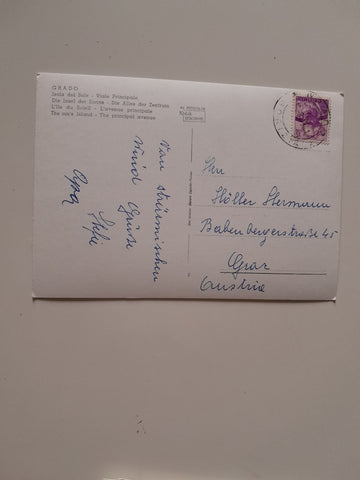 GRADO
Isola del Sole - Viale Principale
Die Insel der Sonne - Die Allee der Zentrum
L'île du Soleil - L'avenue principale
The sun's island - The principal avenue
Kodak
Vom stürmischen
Wind Grüsse
Opa Stefie
Herr
Höller Hermann
Babenbergerstraße 45
Graz
Austria